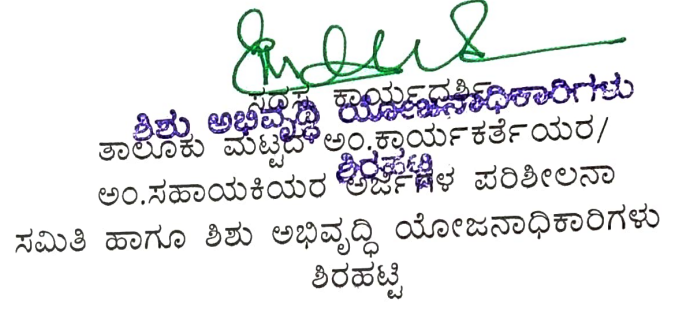 ಸದಸ್ಯ ಕಾರ್ಯದರ್ಶಿ
ಶಿಶು ಅಭಿವೃದ್ಧಿ ಯೋಜನಾಧಿಕಾರಿಗಳು
ತಾಲೂಕು ಮಟ್ಟದ ಅಂ.ಕಾರ್ಯಕರ್ತೆಯರ/
ಶಿರಹಟ್ಟಿ
ಅಂ.ಸಹಾಯಕಿಯರ ಅರ್ಜಿಗಳ ಪರಿಶೀಲನಾ
ಸಮಿತಿ ಹಾಗೂ ಶಿಶು ಅಭಿವೃದ್ಧಿ ಯೋಜನಾಧಿಕಾರಿಗಳು
ಶಿರಹಟ್ಟಿ